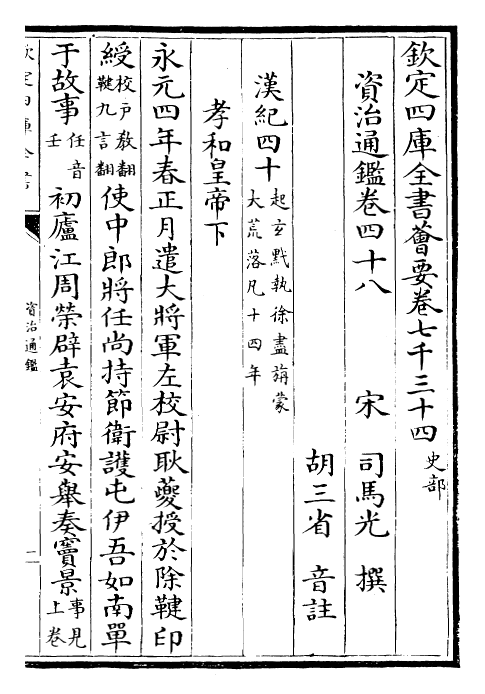 欽定四庫全書薈要卷七千三十四 史部
資治通鑑卷四十八 宋 司馬光 撰
胡三省 音註
漢紀四十 起玄黓執徐盡旃蒙大荒落凡十四年
孝和皇帝下
永元四年春正月遣大將軍左校尉耿夔授於除鞬印
綬 校户敎翻鞬九言翻 使中郎將任尚持節衛護屯伊吾如南單
于故事 任音壬 初廬江周榮辟袁安府安舉奏竇景 事見上卷
欽定四庫全書
資治通鑑
一